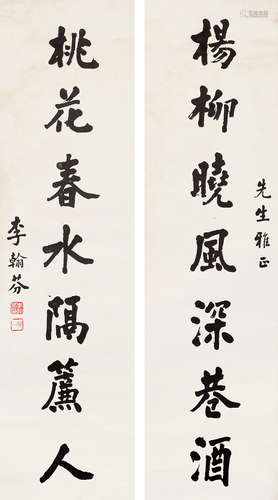 楊柳曉風深巷酒
先生雅正
桃花春水隔簾人
李翰芬